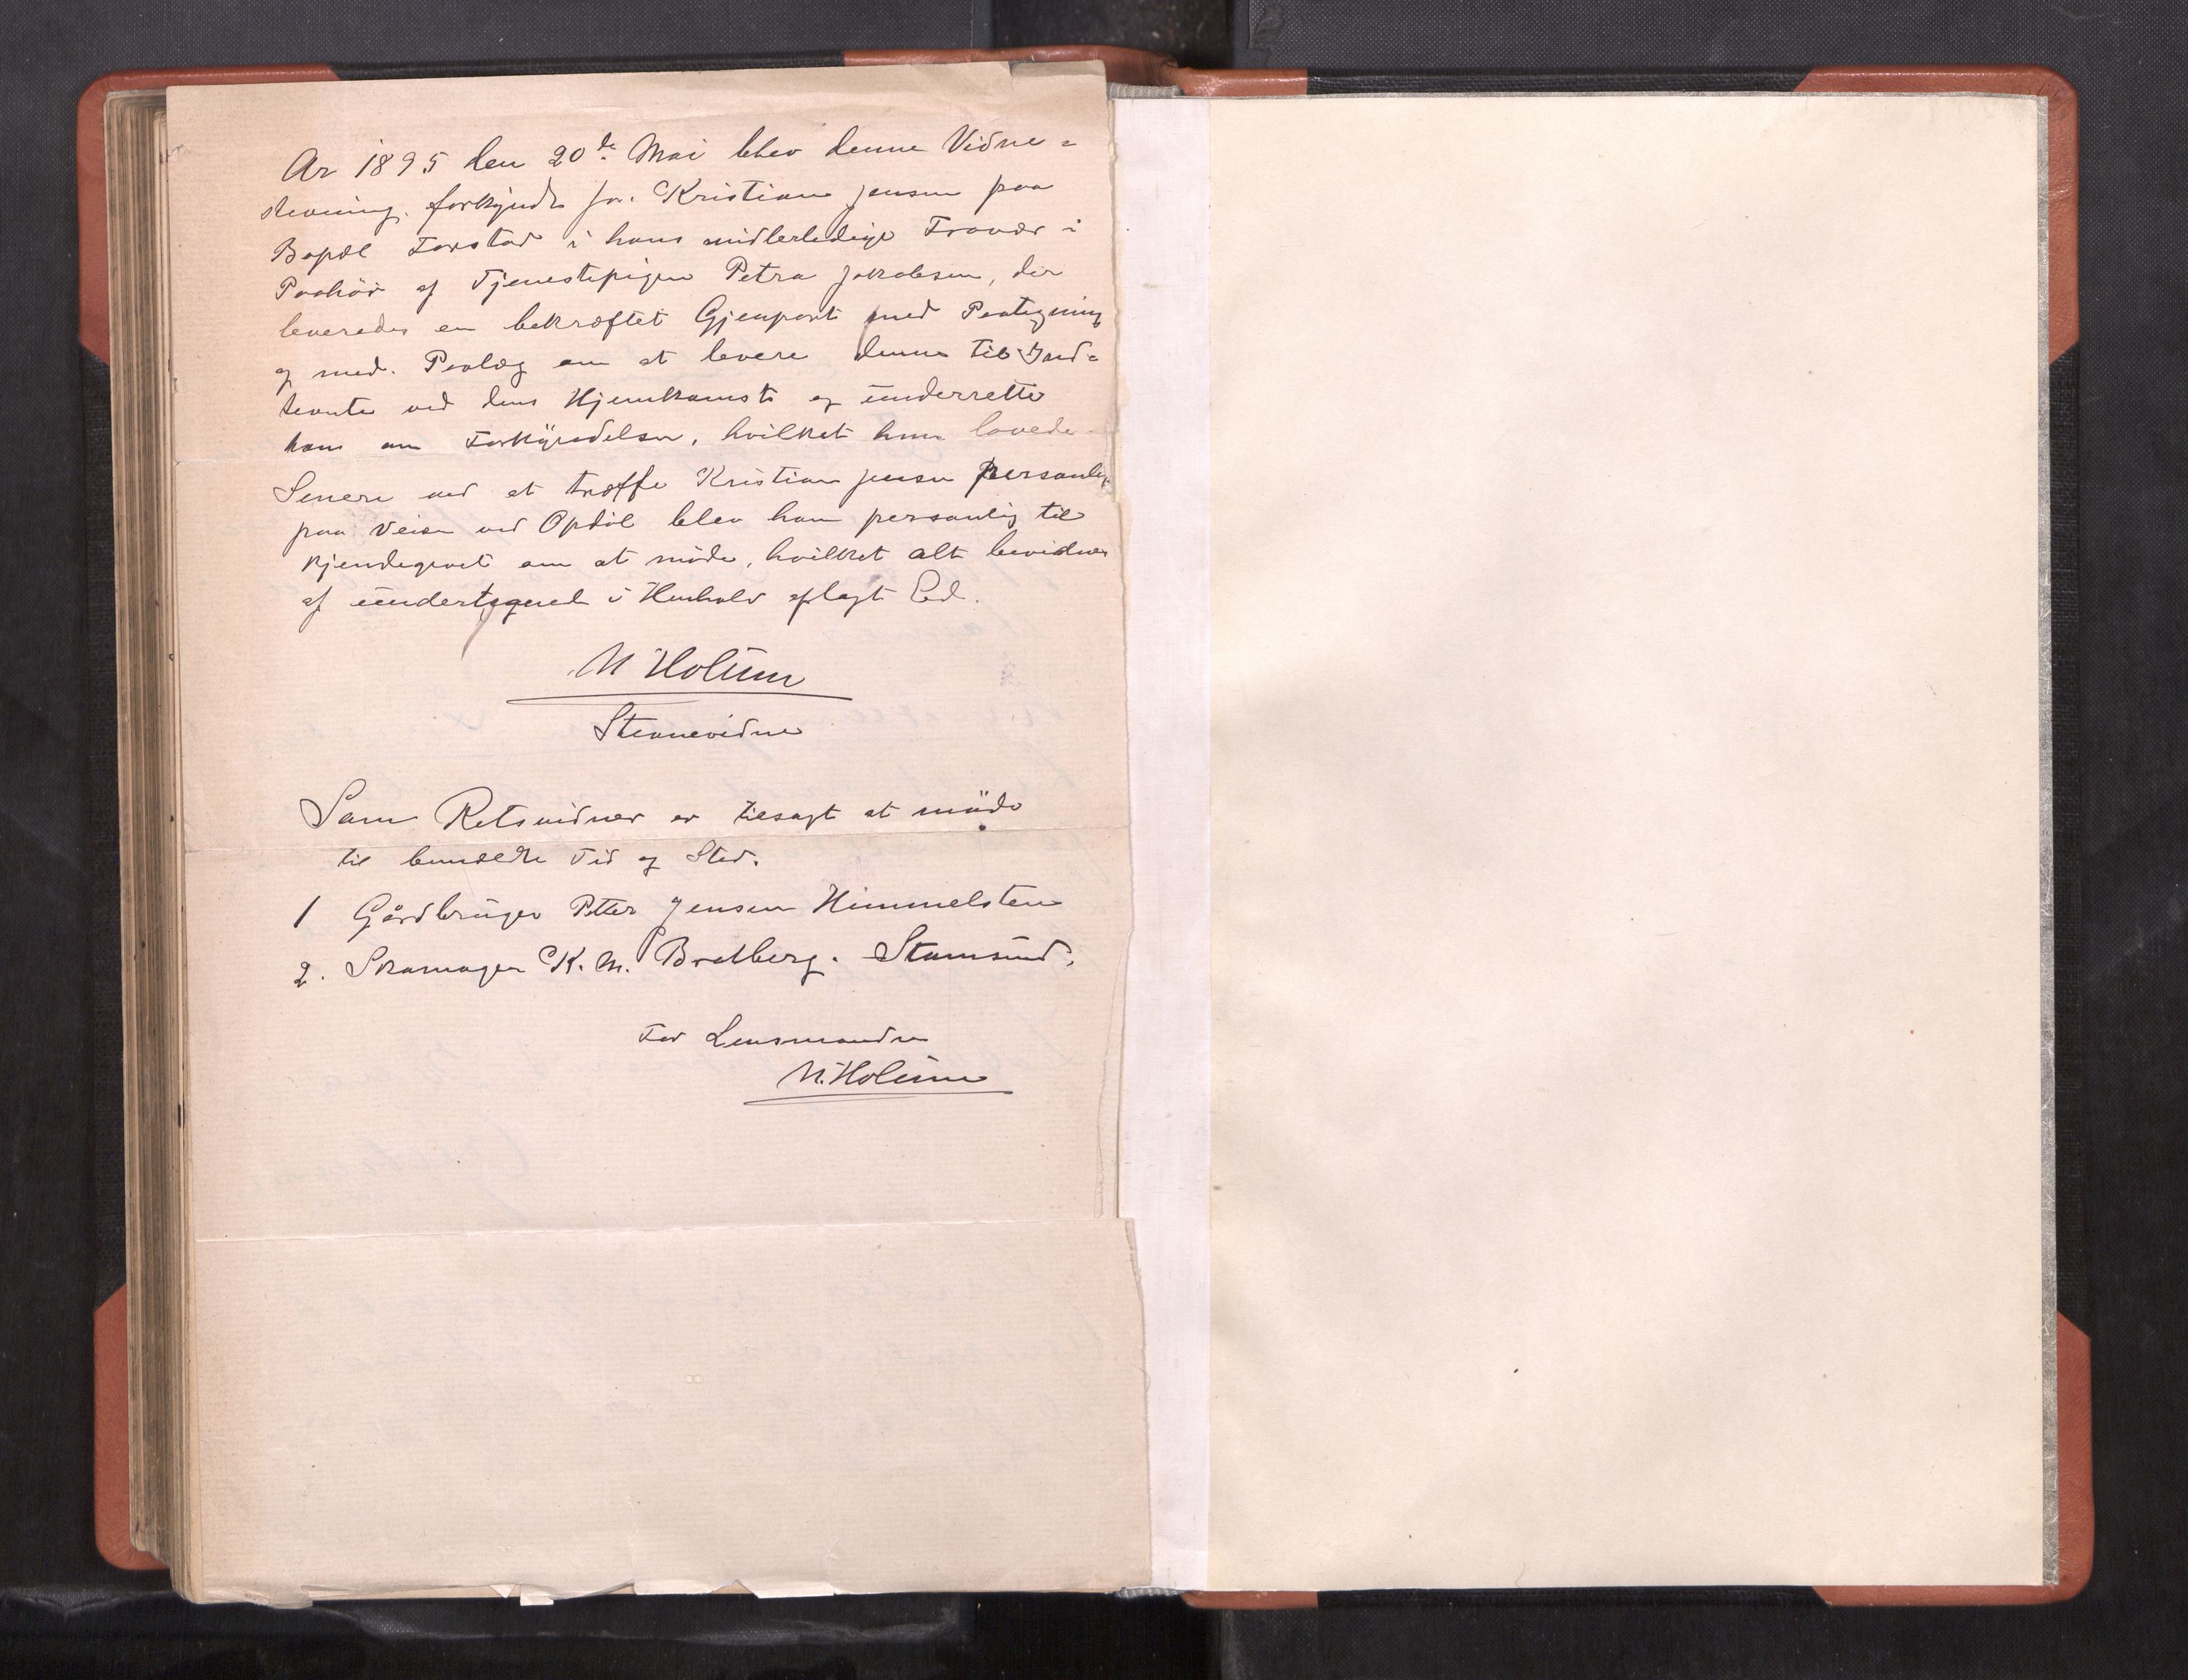 Ar 1895 den 20de Mai blev denne Vidne=
stevning forkyndt for Kristian Jensen paa
Bopæl Farstad i hans midlertidige Fravær i
Paahør af Tjenestepigen Petra Jakobsen, der
leveredes en bekræftet Gjenpart med Paategning
og med Paalæg om at levere denne til Ind=
stevnte ved dens Hjemkomst og underrette
ham om Forkyndelsen, hvilket hun lovede
Senere ved at træffe Kristian Jensen personlig
paa Veien ved Opdøl blev han personlig til
kjendegivet om at møde, hvilket alt bevidnes
af undertegnet i Henhold aflagt Ed.
N Holum
Stevnevidne
Som Retsvidner er tilsagt at møde
til berammede Tid og Sted.
1 Gårdbruger Petter Jensen Himmelsten
2. Skomager K. M. Bredberg. Stamsund.
For Lensmanden
N. Holum